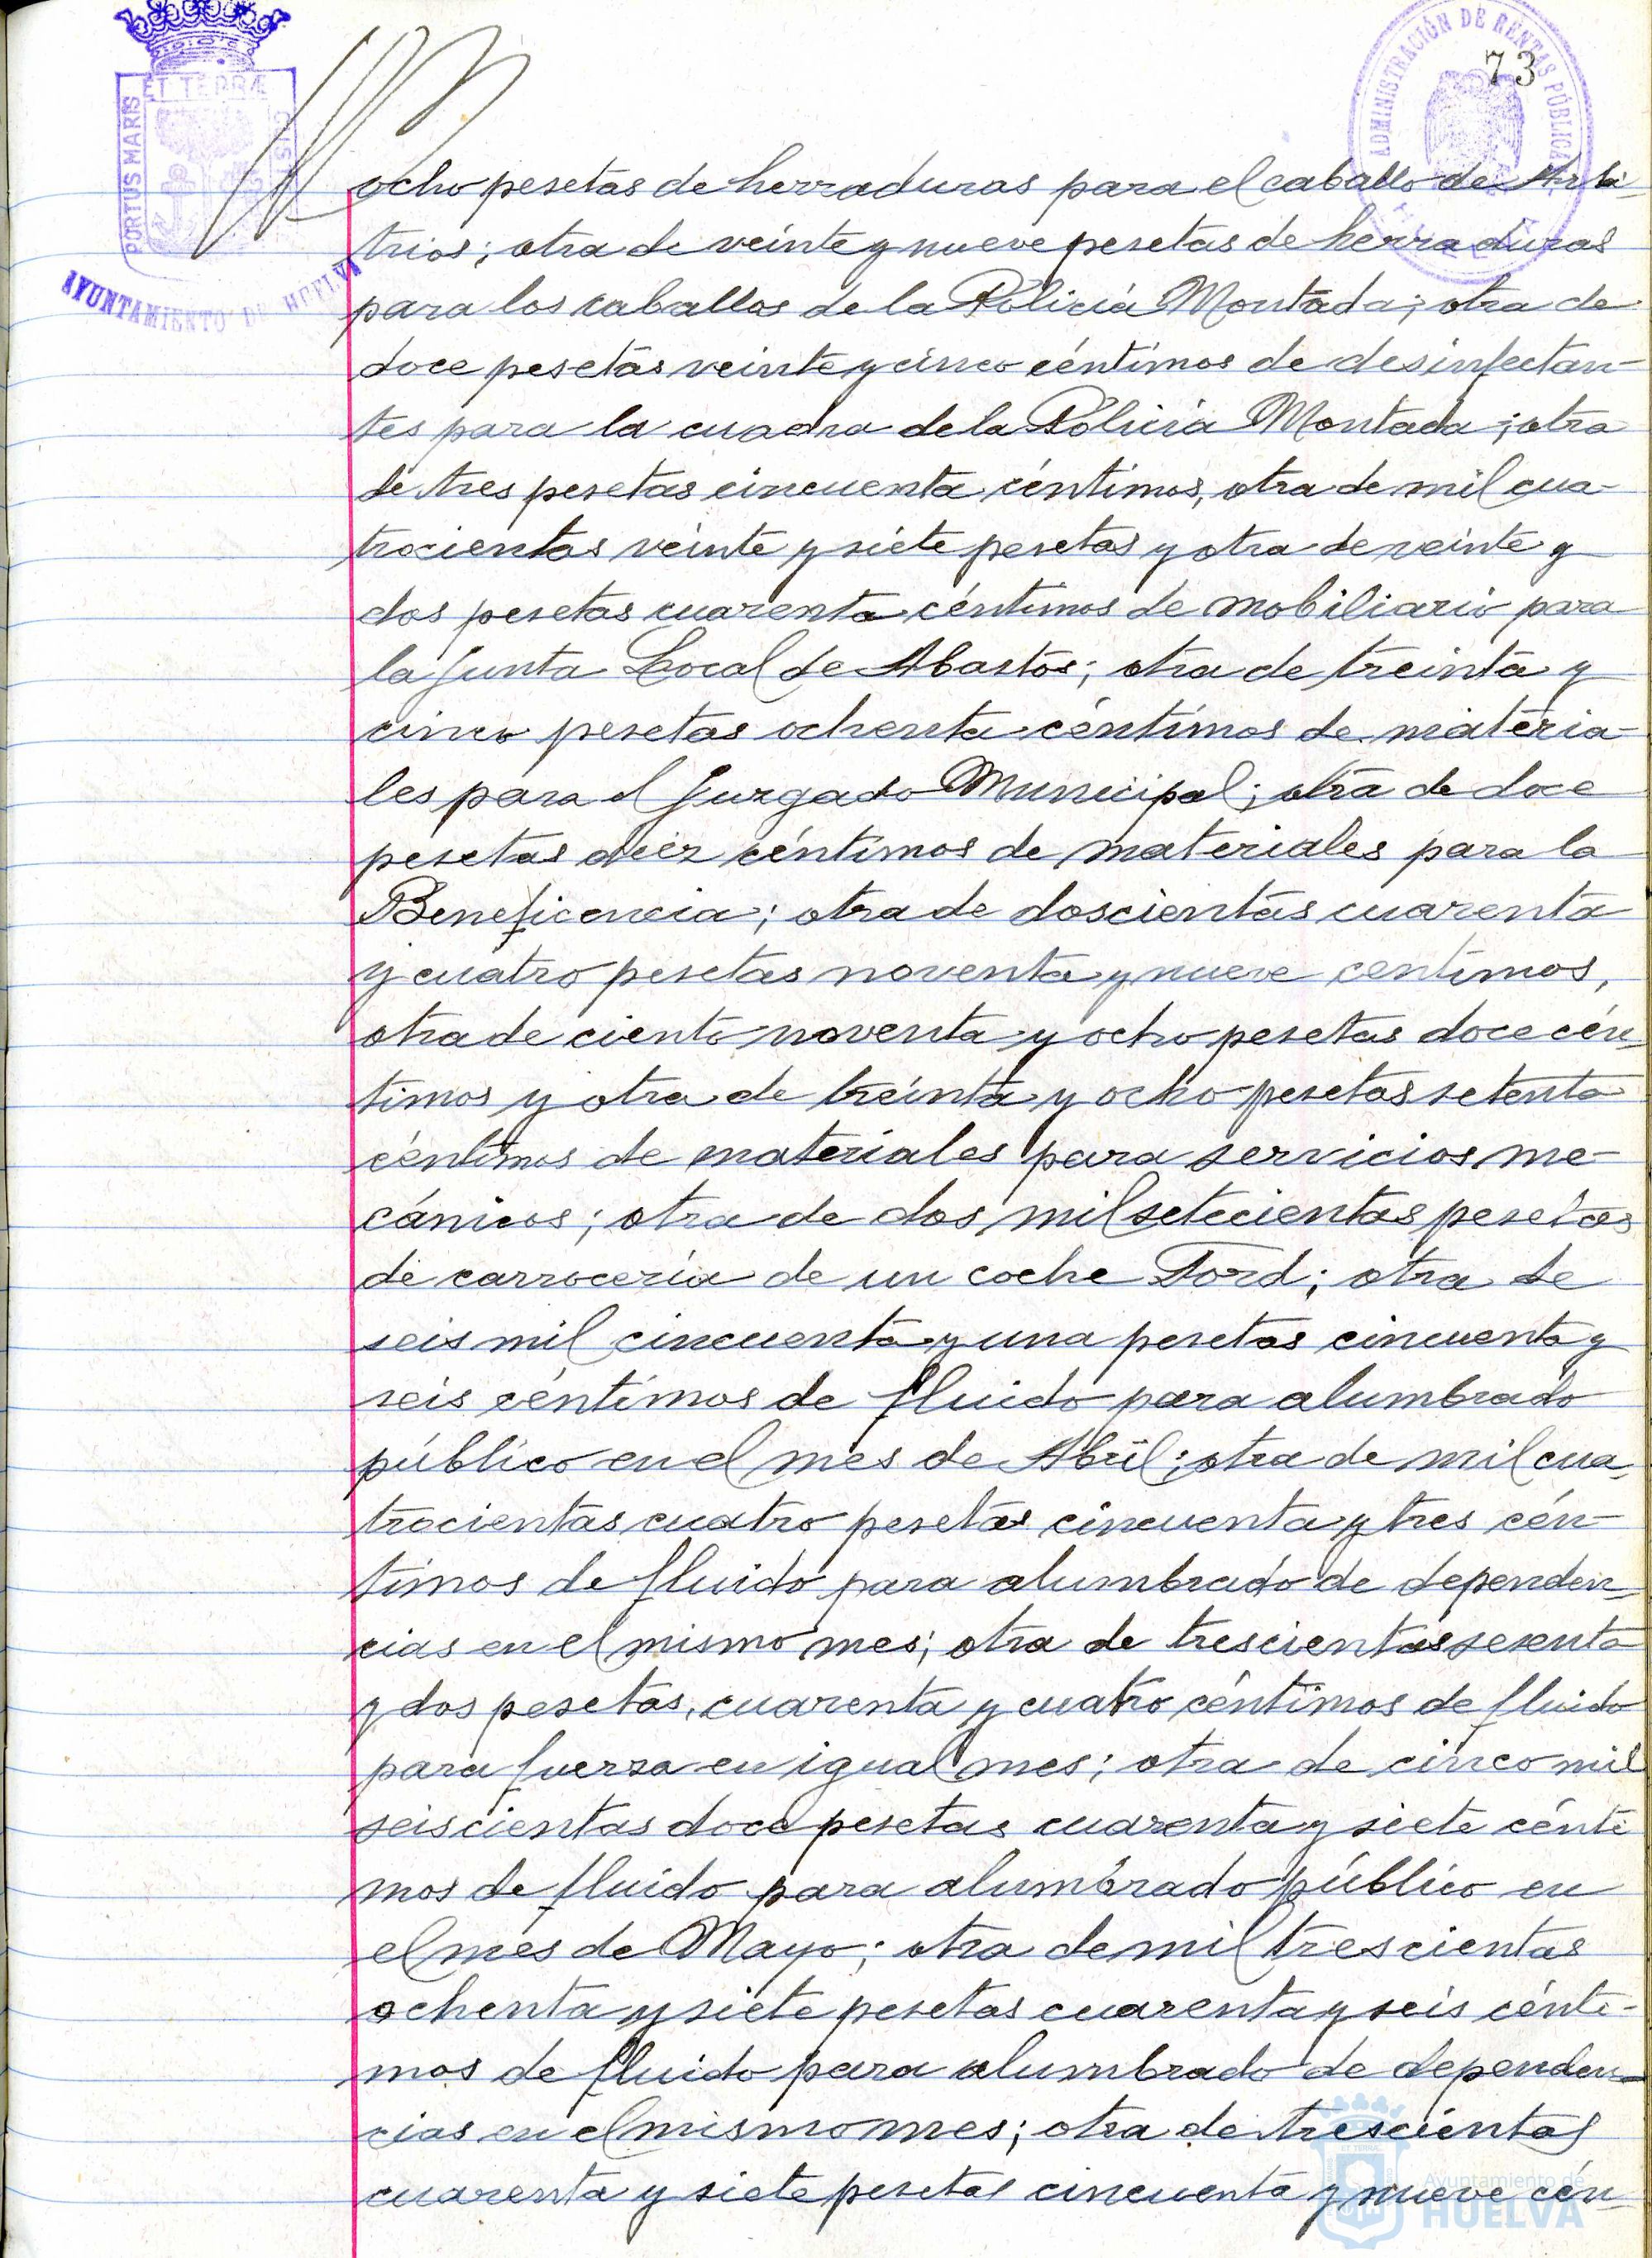 73
ADMINISTRACIÓN DE RENTAS PÚBLICAS
ET TERRÆ
PORTUS MARIS
AYUNTAMIENTO DE HUELVA
ocho pesetas de herraduras para el caballo de Arbi-
trios; otra de veinte y nueve pesetas de herraduras
para los caballos de la Policía Montada; otra de
doce pesetas veinte y cinco céntimos de desinfectan-
tes para la cuadra de la Policía Montada; otra
de tres pesetas cincuenta céntimos, otra de mil cua-
trocientas veinte y siete pesetas y otra de veinte y
dos pesetas cuarenta céntimos de mobiliario para
la Junta Local de Abastos; otra de treinta y
cinco pesetas ochenta céntimos de materia-
les para el Juzgado Municipal; otra de doce
pesetas diez céntimos de materiales para la
Beneficencia; otra de doscientas cuarenta
y cuatro pesetas noventa y nueve centimos,
otra de ciento noventa y ocho pesetas doce cén-
timos y otra de treinta y ocho pesetas setenta
céntimos de materiales para servicios me-
cánicos; otra de dos mil setecientas pesetas
de carrocería de un coche Ford; otra de
seis mil cincuenta y una pesetas cincuenta y
seis céntimos de fluido para alumbrado
público en el mes de Abril; otra de mil cua-
trocientas cuatro pesetas cincuenta y tres cén-
timos de fluido para alumbrado de dependen-
cias en el mismo mes; otra de trescientas sesenta
y dos pesetas, cuarenta y cuatro céntimos de fluido
para fuerza en igual mes; otra de cinco mil
seiscientas doce pesetas cuarenta y siete cénti
mos de fluido para alumbrado público en
el mes de Mayo; otra de mil trescientas
ochenta y siete pesetas cuarenta y seis cénti-
mos de fluido para alumbrado de dependen-
cias en el mismo mes; otra de trescientas
cuarenta y siete pesetas cincuenta y nueve cén-
Ayuntamiento de
HUELVA